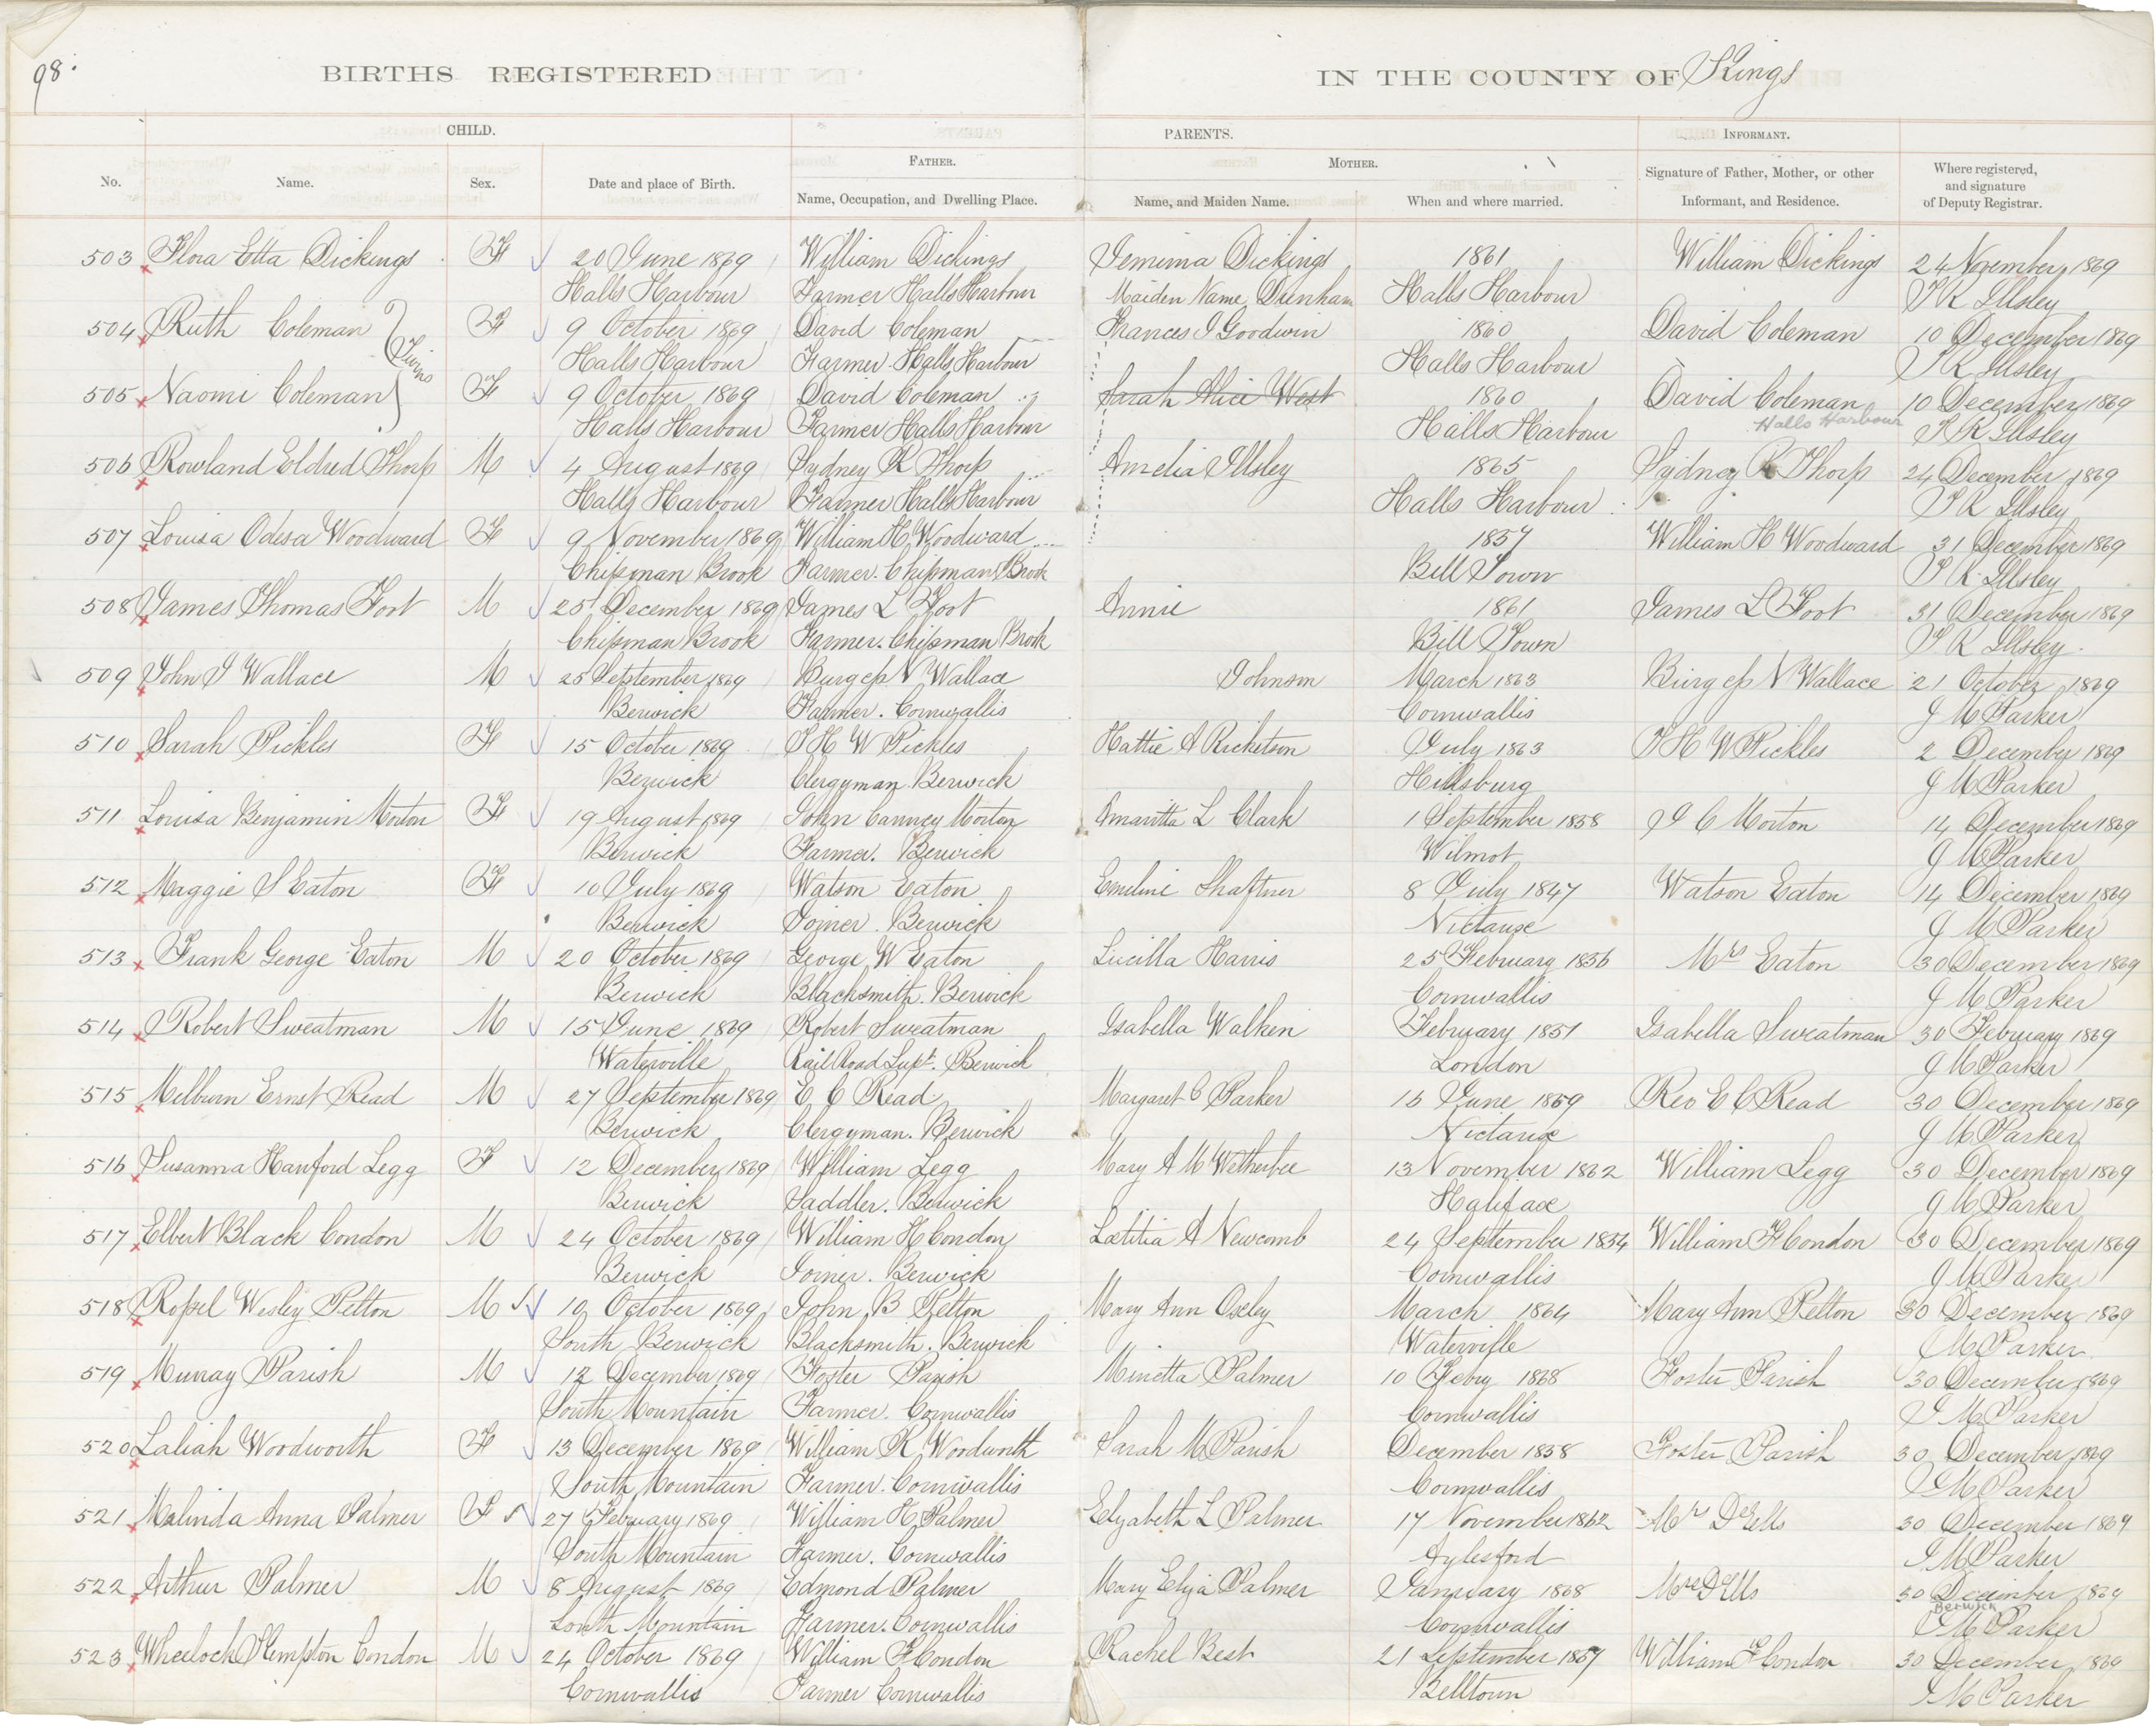 98.
BIRTHS REGISTERED
IN THE COUNTY OF Kings
CHILD.
PARENTS.
INFORMANT.
FATHER.
MOTHER.
No.
Name.
Sex.
Date and place of Birth.
Name, Occupation, and Dwelling Place.
Name, and Maiden Name.
When and where married.
Signature of Father, Mother, or other
Informant, and Residence.
Where registered,
and signature
of Deputy Registrar.
503 Flora Etta Dickings F 20 June 1869 William Dickings Jemima Dickings 1861 William Dickings 24 November 1869
Halls Harbour Farmer Halls Harbour Maiden Name Dunham Halls Harbour T R Illsley
504 Ruth Coleman Twins F 9 October 1869 David Coleman Frances I Goodwin 1860 David Coleman 10 December 1869
Halls Harbour Farmer Halls Harbour Halls Harbour T R Illsley
505 Naomi Coleman F 9 October 1869 David Coleman Sarah Alice West 1860 David Coleman 10 December 1869
Halls Harbour Farmer Halls Harbour Halls Harbour Halls Harbour T R Illsley
506 Rowland Eldred Thorp M 4 August 1869 Sydney R Thorp Amelia Illsley 1865 Sydney R Thorp 24 December 1869
Halls Harbour Farmer Halls Harbour Halls Harbour T R Illsley
507 Louisa Odesa Woodward F 9 November 1869 William H Woodward 1857 William H Woodward 31 December 1869
Chipman Brook Farmer. Chipman Brook Bill Town T R Illsley
508 James Thomas Foot M 25 December 1869 James L Foot Annie 1861 James L Foot 31 December 1869
Chipman Brook Farmer. Chipman Brook Bill Town T R Illsley
509 John I Wallace M 25 September 1869 Burgess N Wallace Johnson March 1863 Burgess N Wallace 21 October 1869
Berwick Farmer. Cornwallis Cornwallis J M Parker
510 Sarah Pickles F 15 October 1869 T H W Pickles Hattie A Ricketson July 1863 T H W Pickles 2 December 1869
Berwick Clergyman Berwick Hillsburg J M Parker
511 Louisa Benjamin Morton F 19 August 1869 John Morton L Clark 1 September 1858 J C Morton 14 December 1869
Berwick Farmer. Berwick Wilmot J M Parker
512 Maggie S Eaton F 10 July 1869 Watson Eaton Emeline Shaffner 8 July 1847 Watson Eaton 14 December 1869
Berwick Joiner. Berwick Nictaux J M Parker
513 Frank George Eaton M 20 October 1869 George W Eaton Lucilla Harris 25 February 1856 Mrs Eaton 30 December 1869
Berwick Blacksmith. Berwick Cornwallis J M Parker
514 Robert Sweatman M 15 June 1869 Robert Sweatman Isabella Walken February 1851 Isabella Sweatman 30 February 1869
Waterville Rail Road Supt. Berwick London J M Parker
515 Melburn Ernst Read M 27 September 1869 E C Read Margaret C Parker 15 June 1859 Rev E C Read 30 December 1869
Berwick Clergyman. Berwick Nictaux J M Parker
516 Susanna Hanford Legg F 12 December 1869 William Legg Mary A M Wetherbee 13 November 1862 William Legg 30 December 1869
Berwick Saddler. Berwick Halifax J M Parker
517 Elbert Black Condon M 24 October 1869 William H Condon Lætitia A Newcomb 24 September 1854 William H Condon 30 December 1869
Berwick Joiner. Berwick Cornwallis J M Parker
518 Rossel Wesley Pelton M 10 October 1869 John B Pelton Mary Ann Oxley March 1864 Mary Ann Pelton 30 December 1869
South Berwick Blacksmith. Berwick Waterville J M Parker
519 Murray Parish M 12 December 1869 Foster Parish Minetta Palmer 10 Feby 1868 Foster Parish 30 December 1869
South Mountain Farmer. Cornwallis Cornwallis J M Parker
520 Laliah Woodworth F 13 December 1869 William R Woodworth Sarah M Parish December 1858 Foster Parish 30 December 1869
South Mountain Farmer. Cornwallis Cornwallis J M Parker
521 Malinda Anna Palmer F 27 February 1869 William H Palmer Elizabeth L Palmer 17 November 1862 30 December 1869
South Mountain Farmer. Cornwallis Aylesford J M Parker
522 Arthur Palmer M 8 August 1869 Edmond Palmer Mary Eliza Palmer January 1868 30 December 1869
South Mountain Farmer. Cornwallis Cornwallis Berwick J M Parker
523 Wheelock Kempton Condon M 24 October 1869 William F Condon Rachel Best 21 September 1867 William F Condon 30 December 1869
Cornwallis Farmer Cornwallis Belltown J M Parker